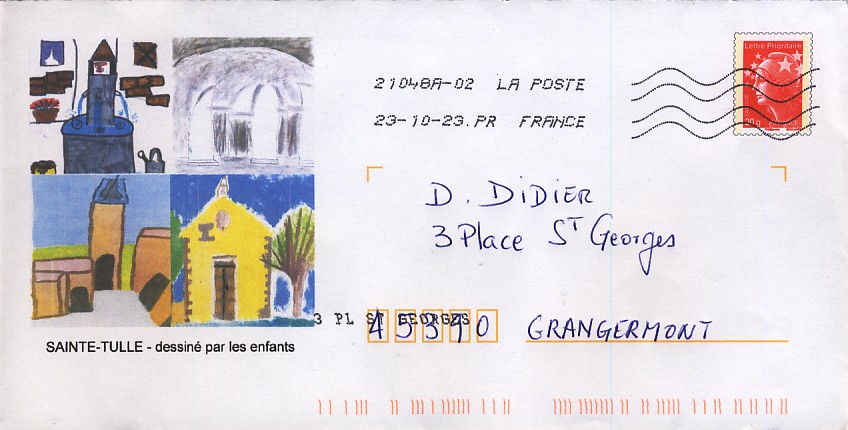 21048A-02 LA POSTE
23-10-23.PR FRANCE
Lettre Prioritaire
20g
D. DiDiER
3 Place ST Georges
3 PL ST GEORGES
45390 GRANGERMONT
SAINTE-TULLE - dessiné par les enfants